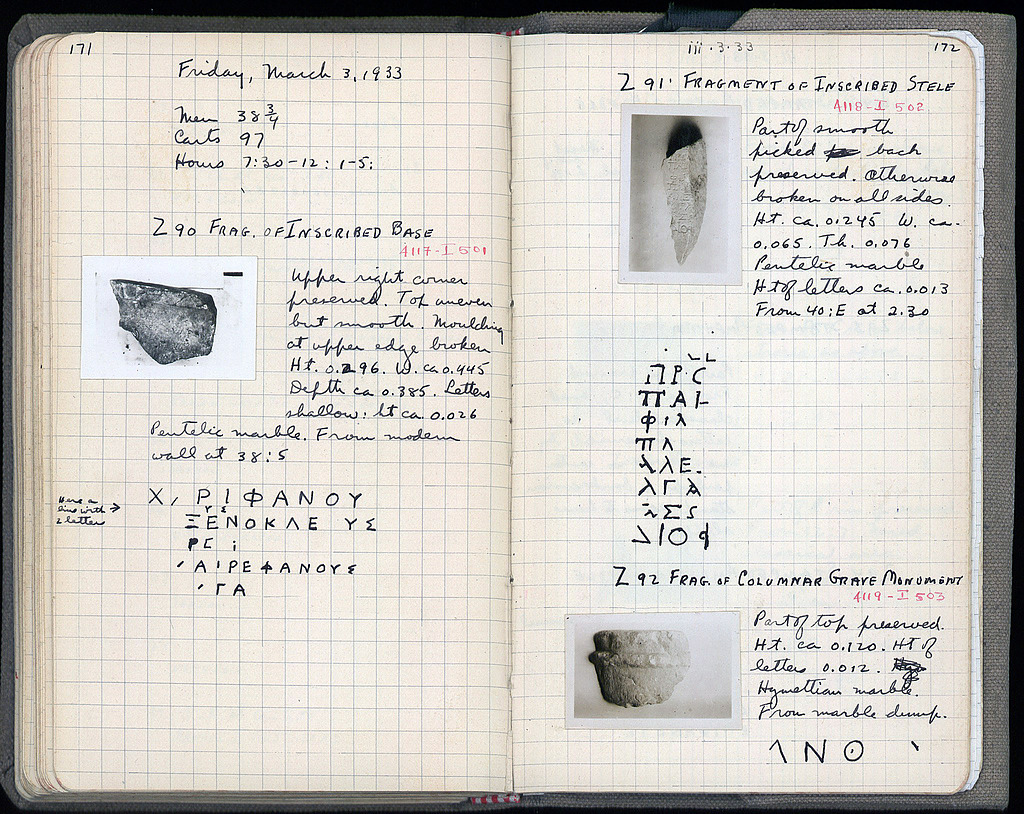 171
Friday, March 3, 1933
Men 38 3/4
Carts 97
Hours 7:30-12: 1-5:
Z 90 FRAG. OF INSCRIBED BASE
4117-I 501
Upper right corner
preserved. Top uneven
but smooth. Moulding
at upper edge broken
Ht. 0.296. W. ca 0.445
Depth ca 0.385. Letters
shallow: ht ca. 0.026
Pentelic marble. From modern
wall at 38:5
Here a
line with →
2 letters
Χ, ΡΙΦΑΝΟΥ
Υ Σ
ΞΕΝΟΚΛΕ ΥΣ
ΡΣ ;
ΑΙΡΕΦΑΝΟΥΣ
ΓΑ
iii.3.33
172
Z 91 FRAGMENT OF INSCRIBED STELE
4118-I 502
Part of smooth
picked back
preserved. Otherwise
broken on all sides.
Ht. ca. 0.245 W. ca.
0.065. Th. 0.076
Pentelic marble
Ht of letters ca. 0.013
From 40:E at 2.30
ΠΡΣ
ΠΑΙ
ΦΙΛ
ΠΛ
ΑΛΕ.
ΛΓΑ
ΙΟΦ
Z 92 FRAG. OF COLUMNAR GRAVE MONUMENT
4119-I 503
Part of top preserved.
Ht. ca 0.120. Ht of
letters 0.012.
Hymettian marble.
From marble dump.
\ Ν Ο \